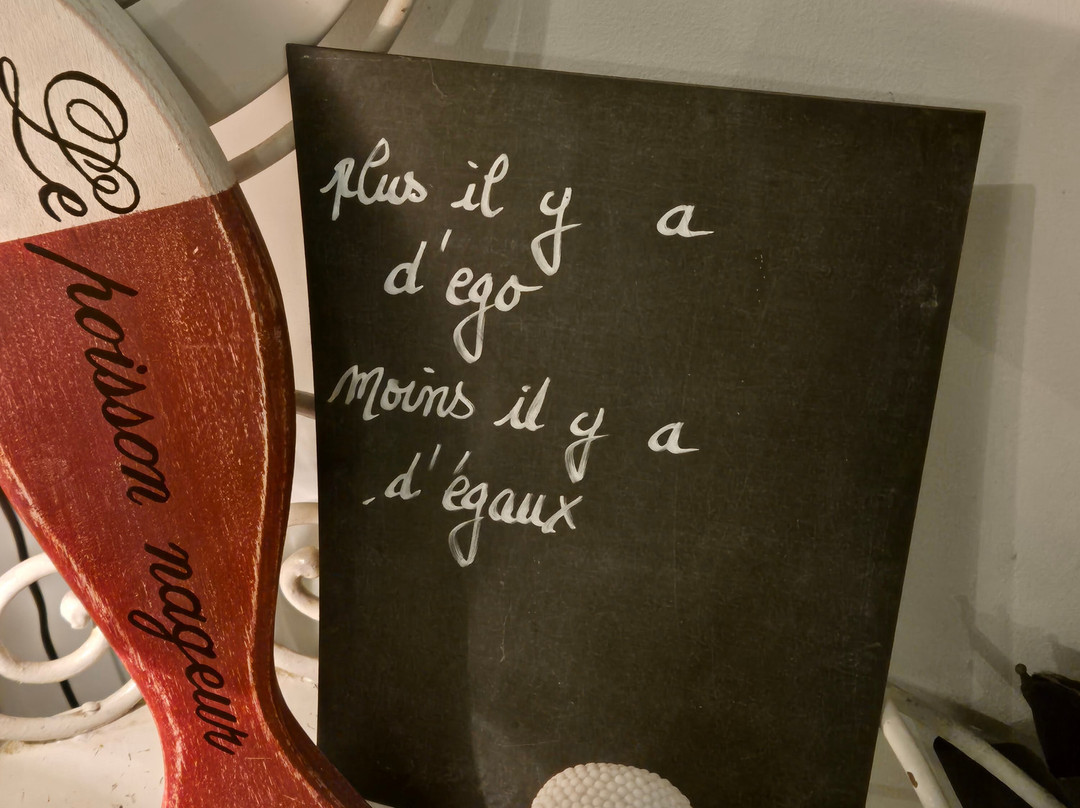 Le
poisson nageur
plus il y a
d'ego
moins il y a
d'égaux